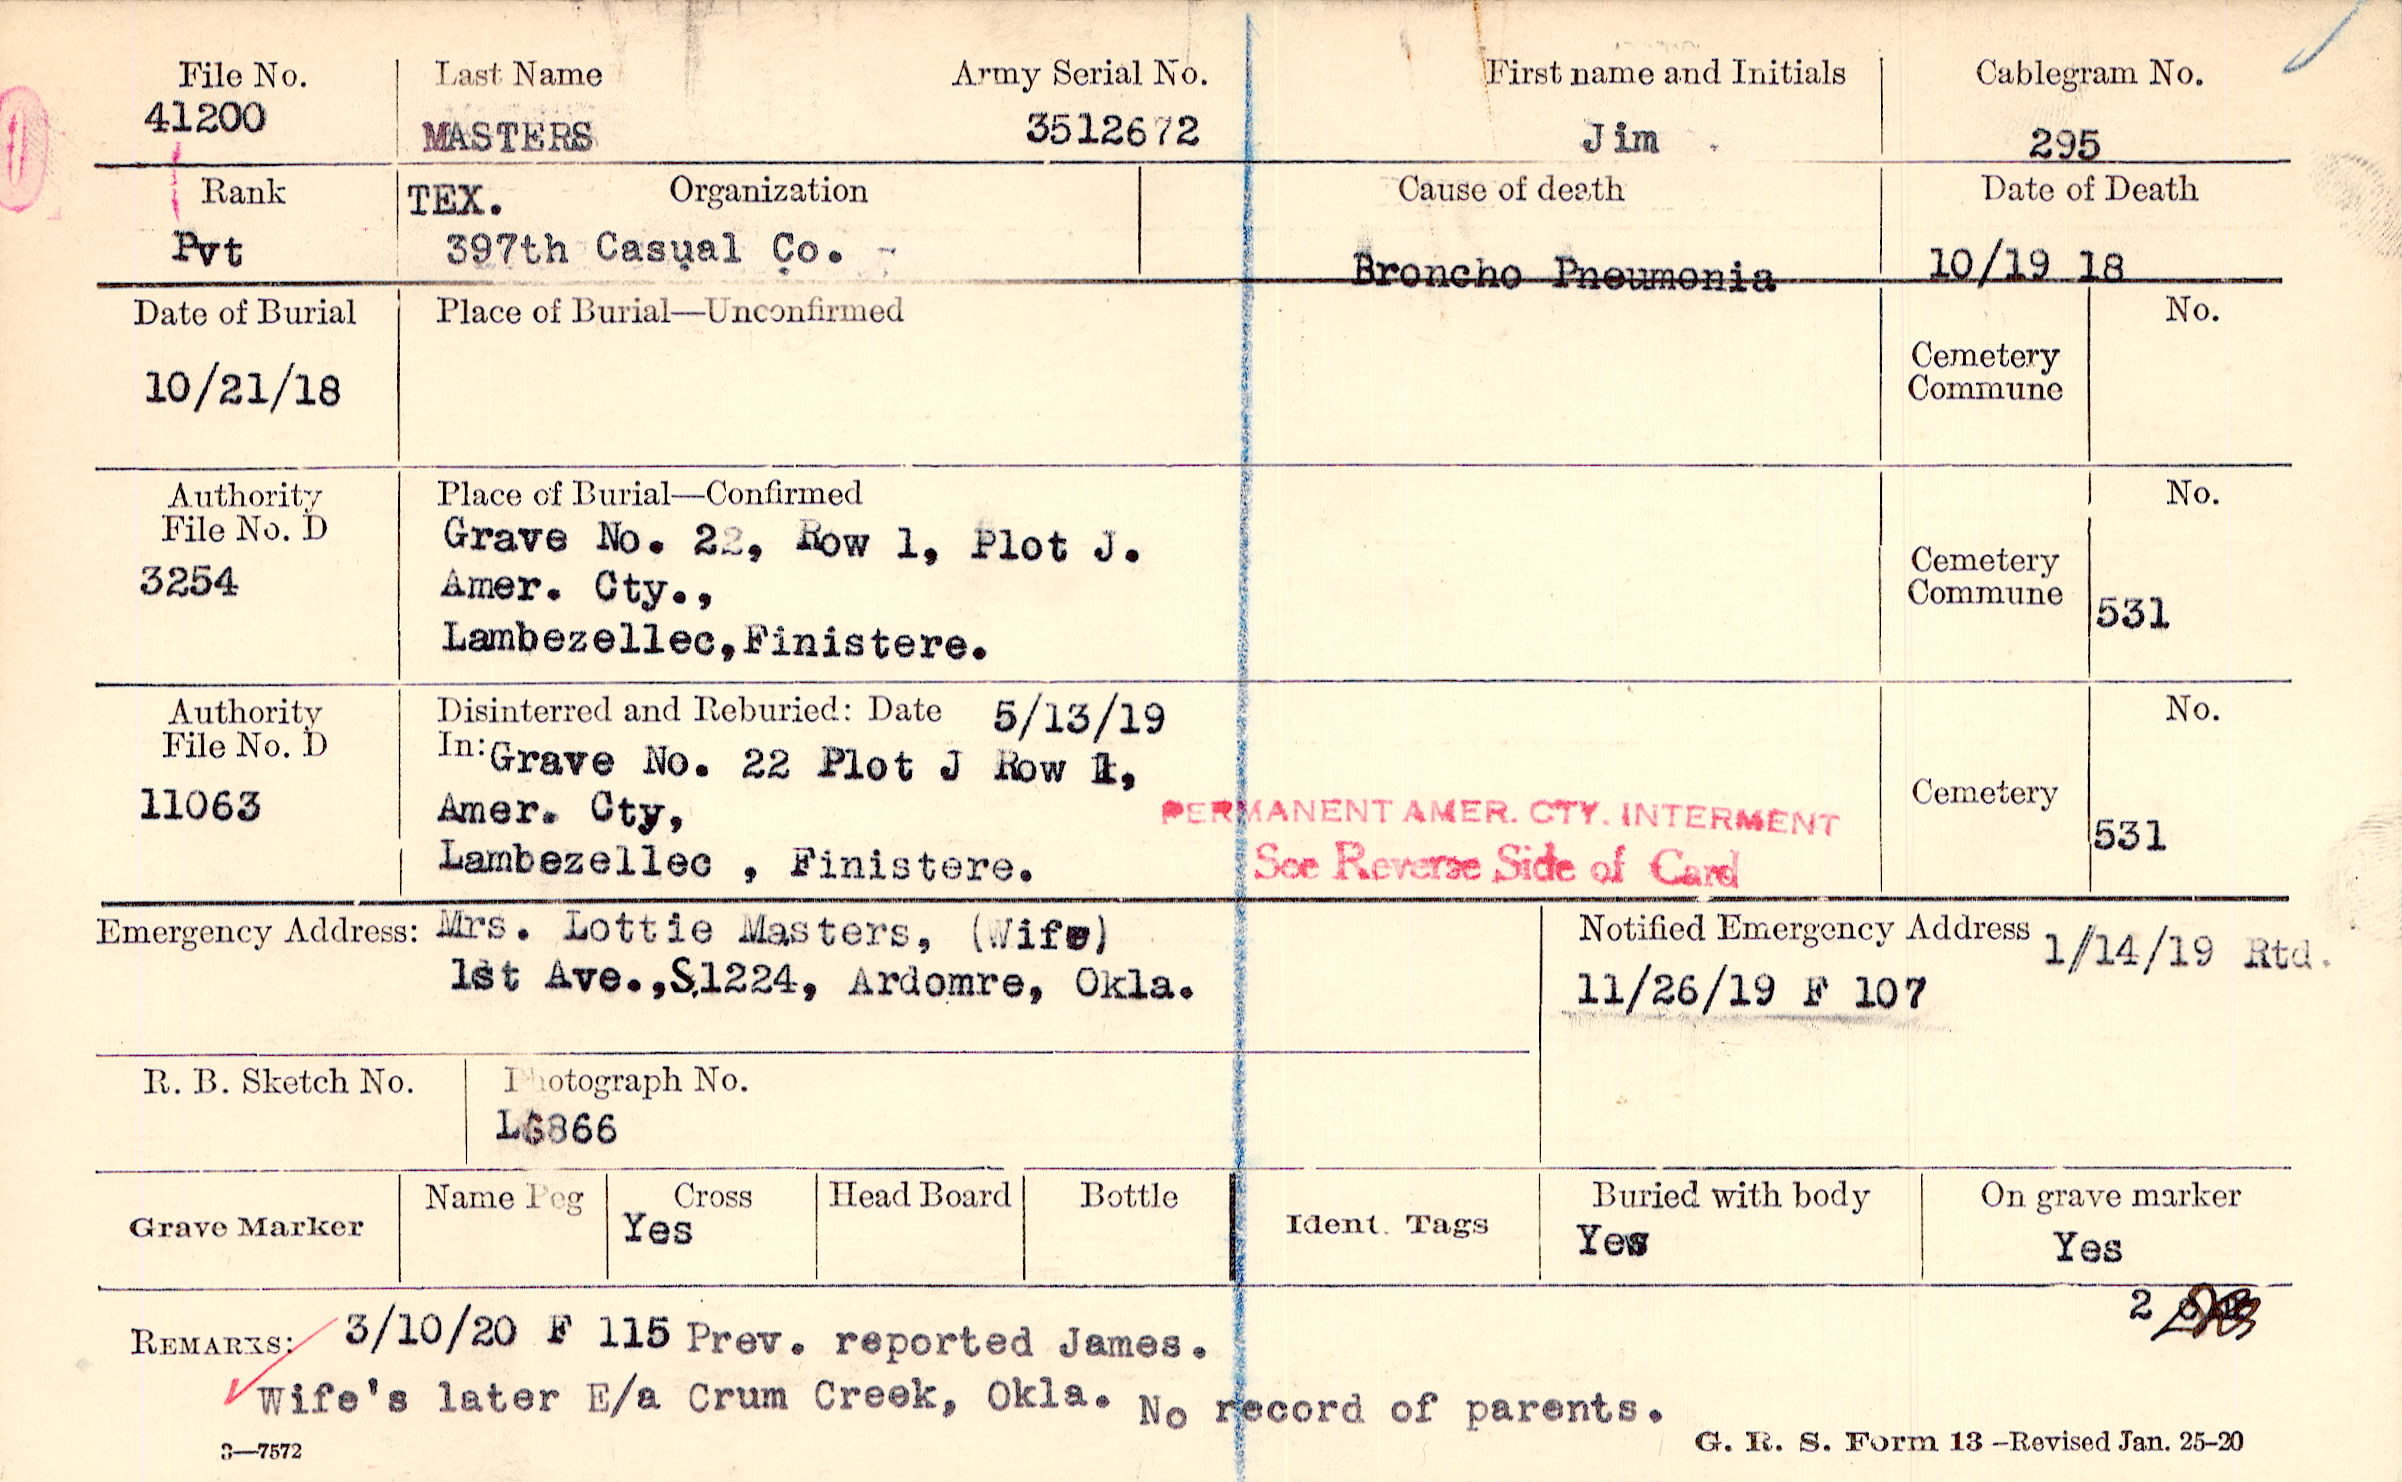 File No. Last Name Army Serial No. First name and Initials Cablegram No.
41200 MASTERS 3512672 Jim 295
Rank TEX. Organization Cause of death Date of Death
Pvt 397th Casual Co. Broncho Pneumonia 10/19 18
Date of Burial Place of Burial—Unconfirmed No.
10/21/18 Cemetery
Commune
Authority Place of Burial—Confirmed No.
File No. D Grave No. 22, Row 1, Plot J.
3254 Amer. Cty., Cemetery
Commune 531
Lambezellec,Finistere.
Authority Disinterred and Reburied: Date 5/13/19 No.
File No. D In: Grave No. 22 Plot J Row 1,
11063 Amer. Cty, Cemetery
PERMANENT AMER. CTY. INTERMENT 531
Lambezellec , Finistere. See Reverse Side of Card
Emergency Address: Mrs. Lottie Masters, (Wife) Notified Emergency Address 1/14/19 Rtd.
1st Ave.,S.1224, Ardomre, Okla. 11/26/19 F 107
R. B. Sketch No. Photograph No.
L6866
Grave Marker Name Peg Cross Head Board Bottle Ident. Tags Buried with body On grave marker
Yes Yes Yes
2
REMARKS: 3/10/20 F 115 Prev. reported James.
Wife's later E/a Crum Creek, Okla. No record of parents.
3—7572 G. R. S. Form 13 —Revised Jan. 25-20